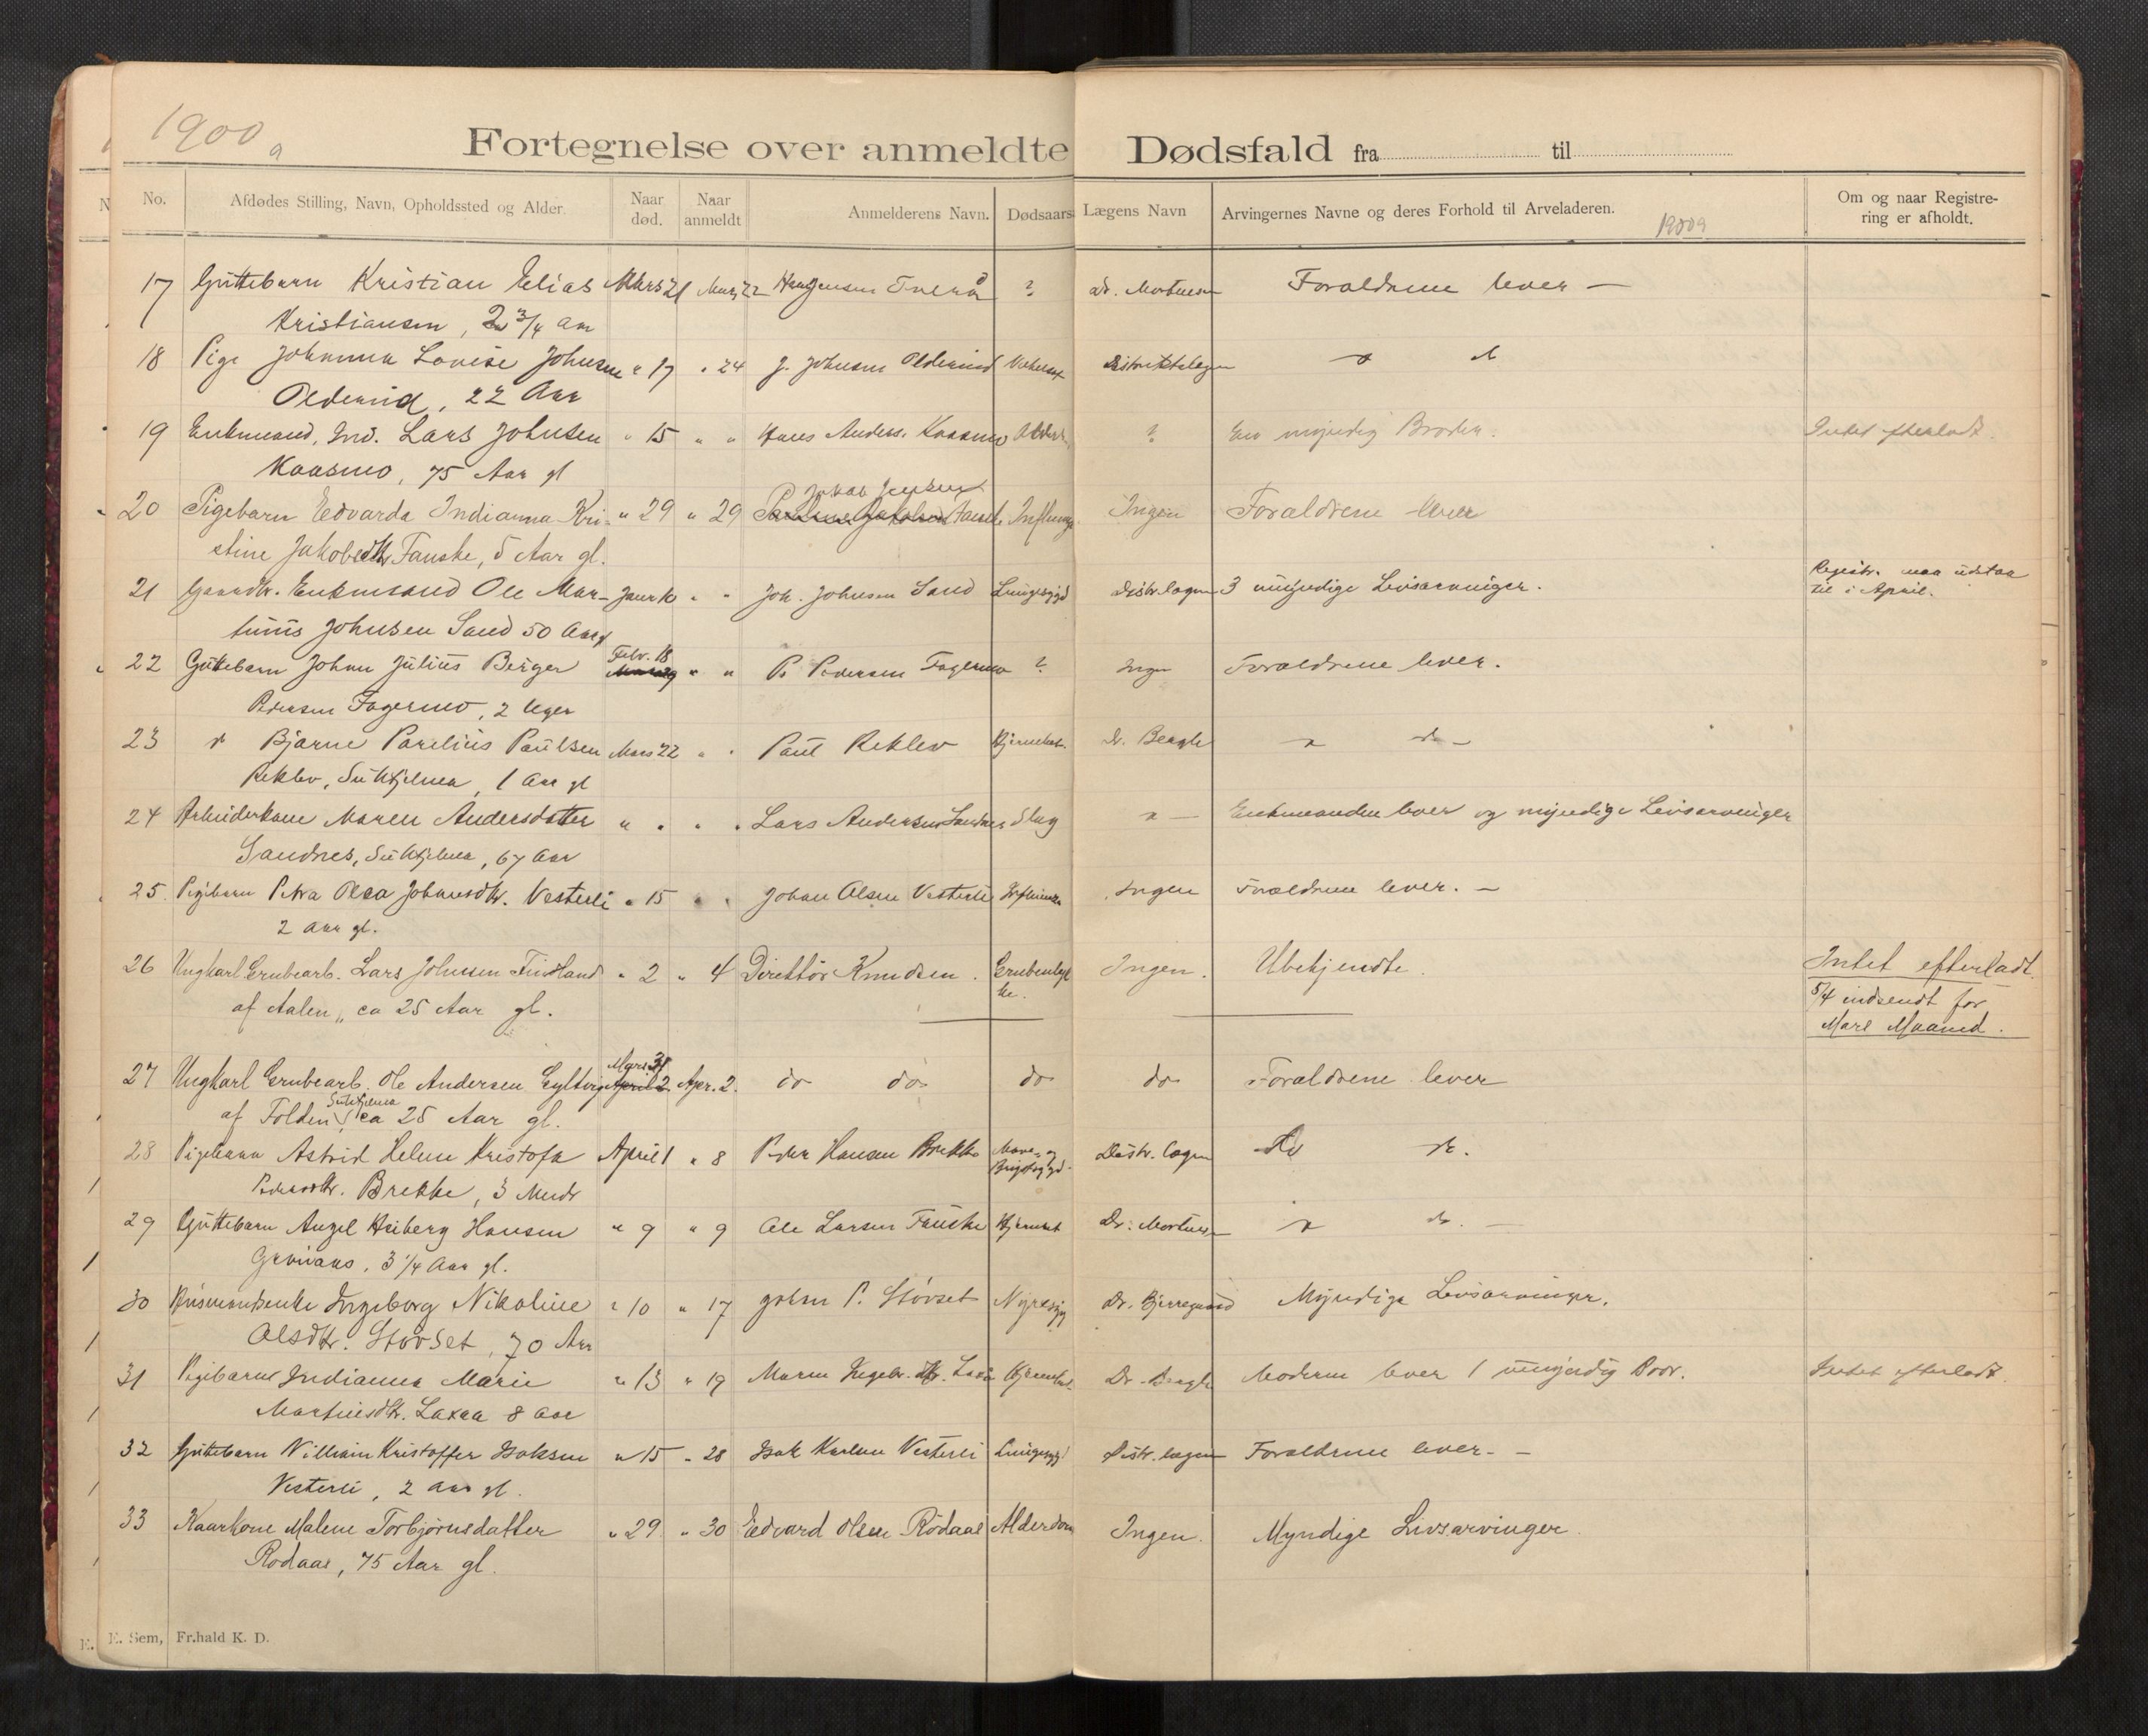 1900
a
Fortegnelse over anmeldte Dødsfald fra til
No. Afdødes Stilling, Navn, Opholdssted og Alder. Naar død. Naar anmeldt Anmelderens Navn. Dødsaars Lægens Navn Arvingernes Navne og deres Forhold til Arveladeren. Om og naar Registrering er afholdt.
17 Guttebarn Kristian Elias Mars 21 Mars 22 Hans Jensen Tverå ? Dr. Mortensen Forældrene lever —
Kristiansen, 2 3/4 Aar
18 Pige Johanna Lovise Johnsen " 17 " 24 J. Johnsen Oldereid Distriktslægen
Oldereid, 22 Aar
19 Enkemand, Ind. Lars Johnsen " 15 " " Hans Anders. Kaasmo ? En myndig Broder. Intet efterladt.
Kaasmo, 75 Aar gl
Jakob Jensen
20 Pigebarn Edvarda Indianna Kri- " 29 " 29 Ingen Forældrene lever
stine Jakobsdtr Fauske, 5 Aar gl.
21 Gaardbr. Enkemand Ole Mar- " " Joh. Johnsen Sand Lungesygd Distr.lægen 3 umyndige Livsarvinger. Registr. maa udstaa
til i April.
tinus Johnsen Sand 50 Aar gl
Febr. 18
22 Guttebarn Johan Julius Berger " " P. Pedersen Fagermo ? Ingen Forældrene lever.
Pedersen Fagermo, 2 Uger
23 Bjarne Parelius Paulsen Mars 22 " " Paul Reklev Dr. Bergh
Reklev, Sulitjelma, 1 Aar gl
24 Arbeiderkone Maren Andersdatter " " " " Lars Andersen Sandnes Slag Enkemanden lever og myndige Livsarvinger
Sandnes, Sulitjelma, 67 Aar
25. Pigebarn Petra Olea Johansdtr. Vesterli " 15 " " Johan Olsen Vesterli Ingen Forældrene lever. —
2 Aar gl.
26 Ungkarl Grubearb. Lars Johnsen Finstland " 2 " 4 Direktør Knudsen. Grubeulyk Ingen. Ubekjendte. Intet efterladt.
ke.
af Aalen, ca 25 Aar gl. 5/4 indsendt for
Mars Maaned.
Mars 31
27 Ungkarl Grubearb. Ole Andersen April 2 Apr. 2. do do do do Forældrene lever
Sulitjelma
af Folden, ca 25 Aar gl.
28 Pigebarn Astrid Helene Kristofa April 1 " 8 Peder Hansen Brekke Mave- og Distr. lægen
Pedersdtr. Brekke, 3 Mndr
29 Guttebarn Heiberg Hansen " 9 " 9 Ole Larsen Fauske Dr. Mortensen
3 1/4 Aar gl.
30 Husmandsenke Ingeborg Nikoline " 10 " 17 Johan P. Støvset Nyresyg Dr. Bjerregaard Myndige Livsarvinger.
Olsdtr. Støvset, 70 Aar
31 Pigebarn Indianna Marie " 13 " 19 Dr. Bergh Moderen lever 1 umyndig Bror. Intet efterladt.
Martinsdtr. Laxaa 8 Aar
32 Guttebarn William Kristoffer Isaksen " 15 " 28 Isak Karlsen Vesterli Lungesygd Distr. lægen Forældrene lever. —
Vesterli, 2 Aar gl.
33 Kaarkone Malene Torbjørnsdatter " 29 " 30 Edvard Olsen Rødaas Alderdom Ingen. Myndige Livsarvinger.
Rødaas, 75 Aar gl.
E. E. Sem, Fr.hald K. D.